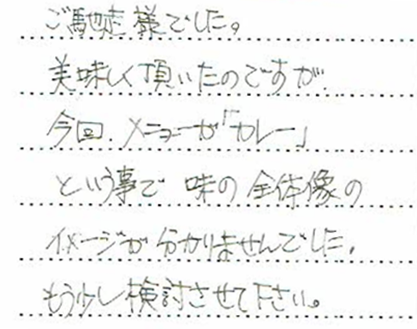 ご馳走様でした。
美味しく頂いたのですが
今回、メニューが「カレー」
という事で 味の全体像の
イメージが分かりませんでした。
もう少し検討させて下さい。